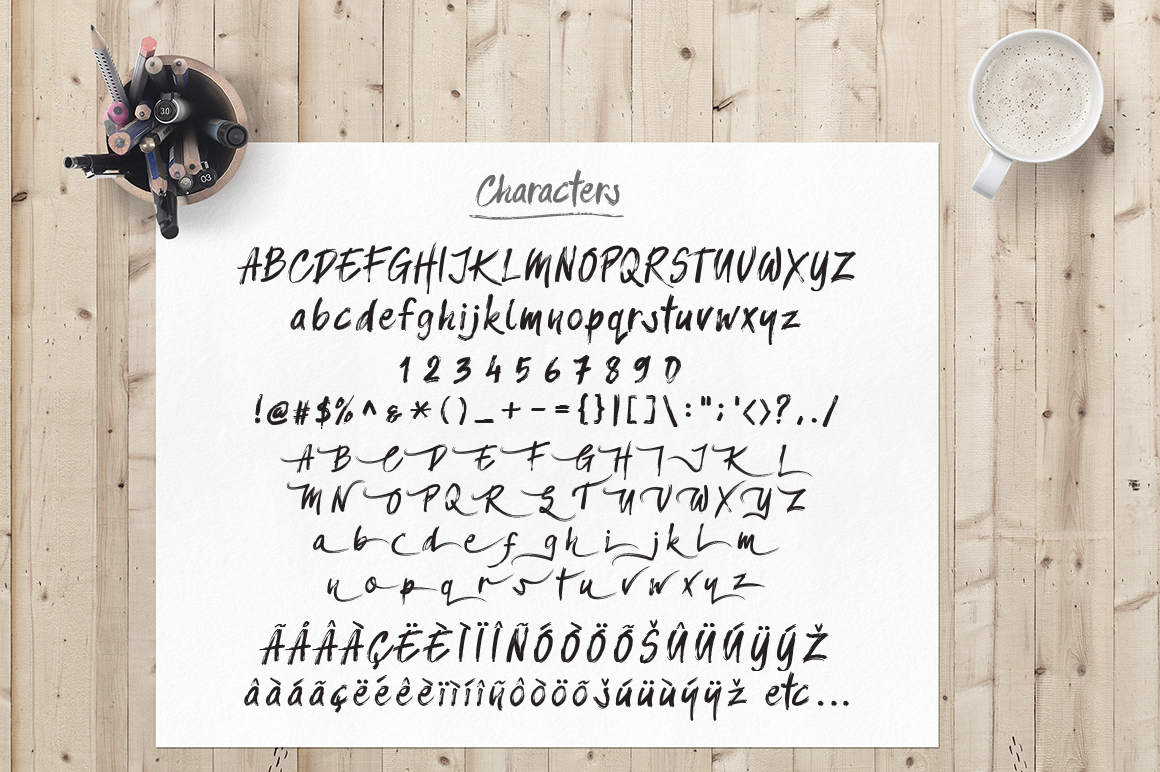 3.0
03
Characters
ABCDEFGHIJKLMNOPQRSTUVWXYZ
abcdefghijklmnopqrstuvwxyz
1 2 3 4 5 6 7 8 9 0
!@#$%^&*()_+-={}|[]\:";'<>?,./
A B C D E F G H I J K L
M N O P Q R S T U V W X Y Z
a b c d e f g h i j k l m
n o p q r s t u v w x y z
ÃÁÂÀÇËÈÌÏÎÑÓÒÖÕŠÛÜÚŸÝŽ
âàáãçëéêèïìíîñôòöõšúüùýÿž etc...